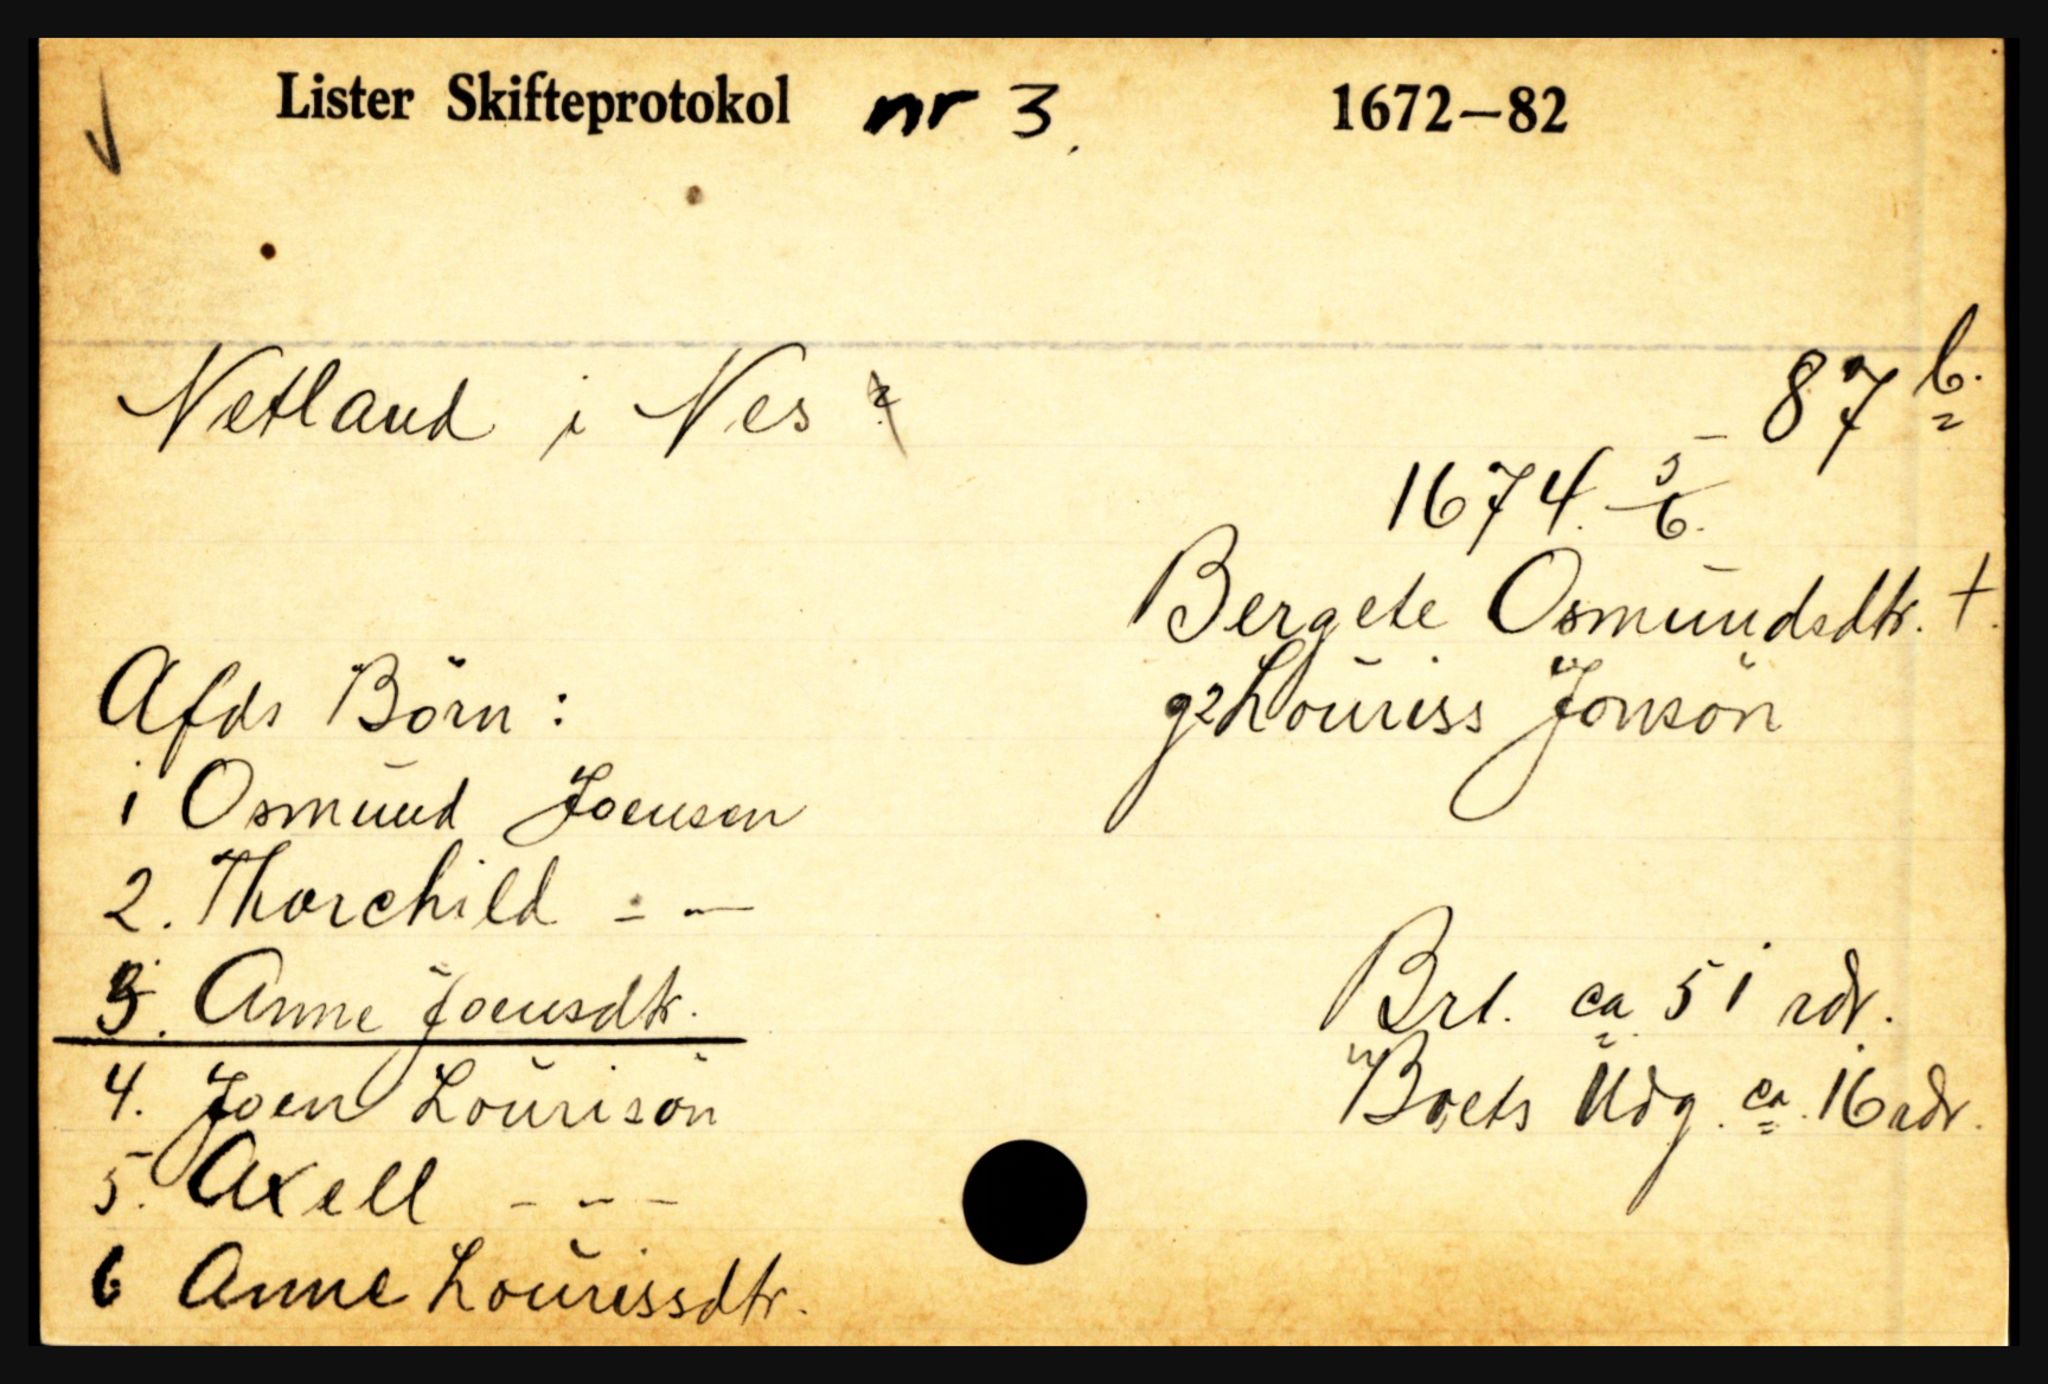 Lister Skifteprotokol nr 3. 1672-82
Netland i Ves ?
87 b.
1674. 5/6.
Bergete Osmundsdtr. †.
g2 Louriss Jonsön
Afds Börn:
1 Osmund Joensen
2. Thorchild - -
3. Anne Joensdtr.
4. Joen Lourisön
5. Axell - - -
6 Anne Lourissdtr.
Brt. ca 51 rdr.
Boets Udg. ca. 16 rdr.